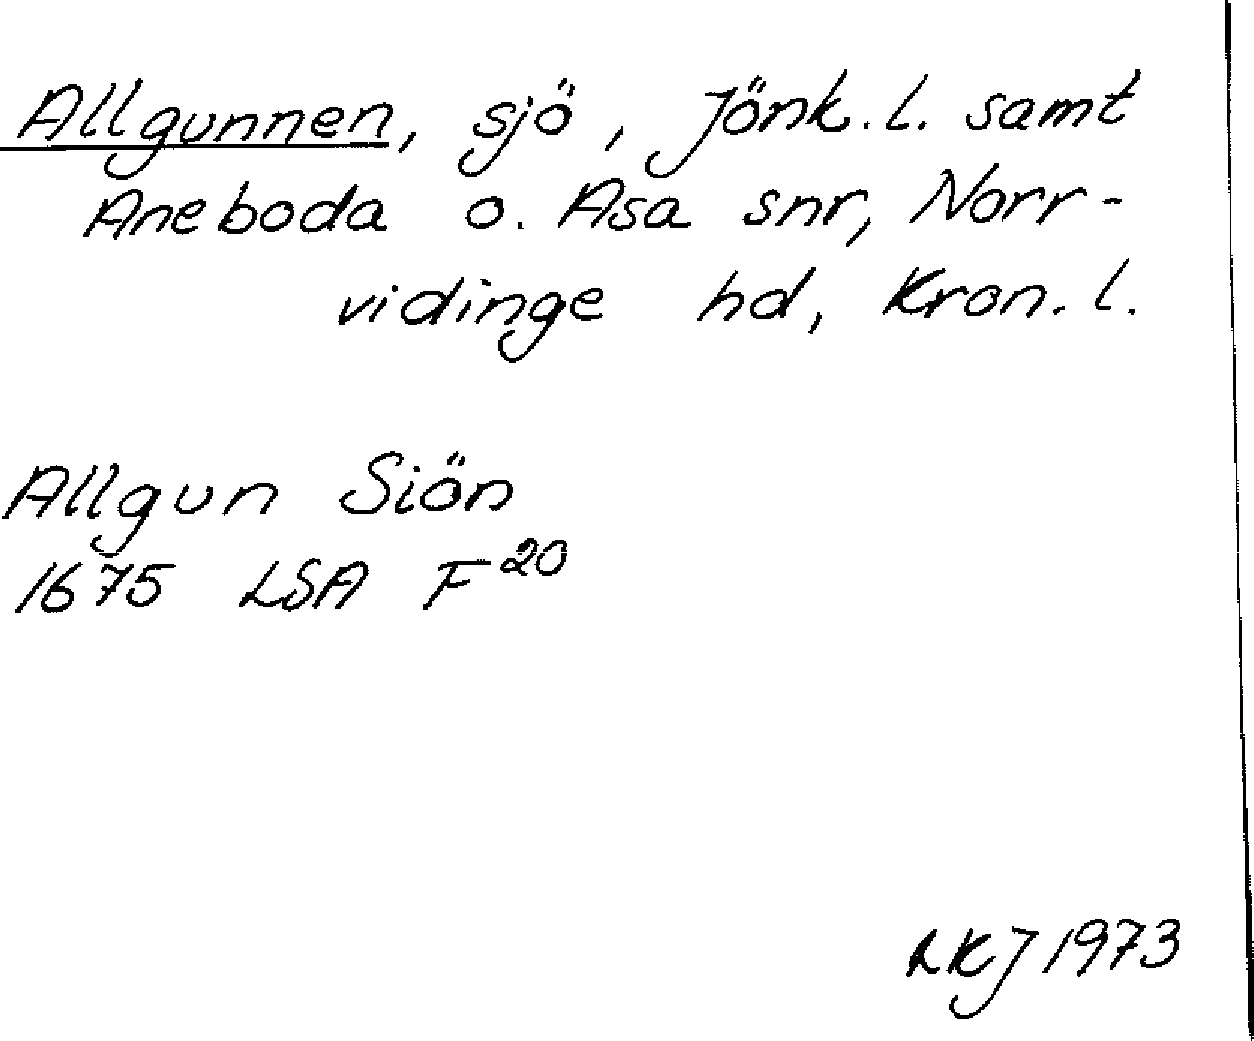 Allgunnen, sjö, Jönk. l. samt
Aneboda o. Asa snr, Norr-
vidinge hd, Kron. l.
Allgun Siön
1675 LSA F20
RKJ 1973